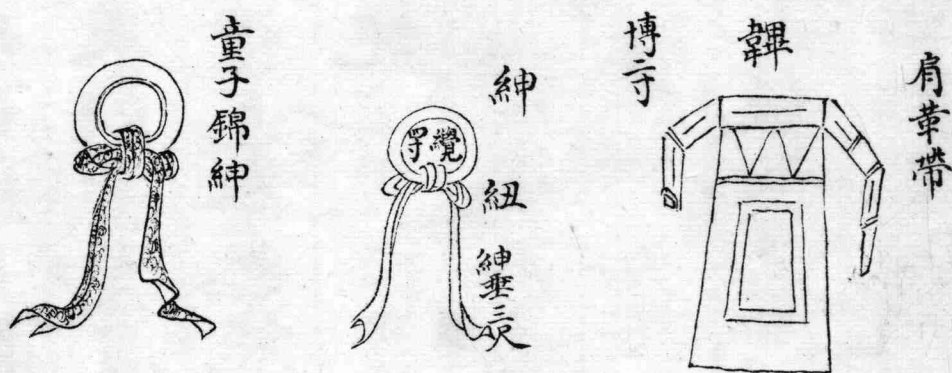 肩革帶
韠
博二寸
紳
紐
紳垂三尺
繚四寸
童子錦紳